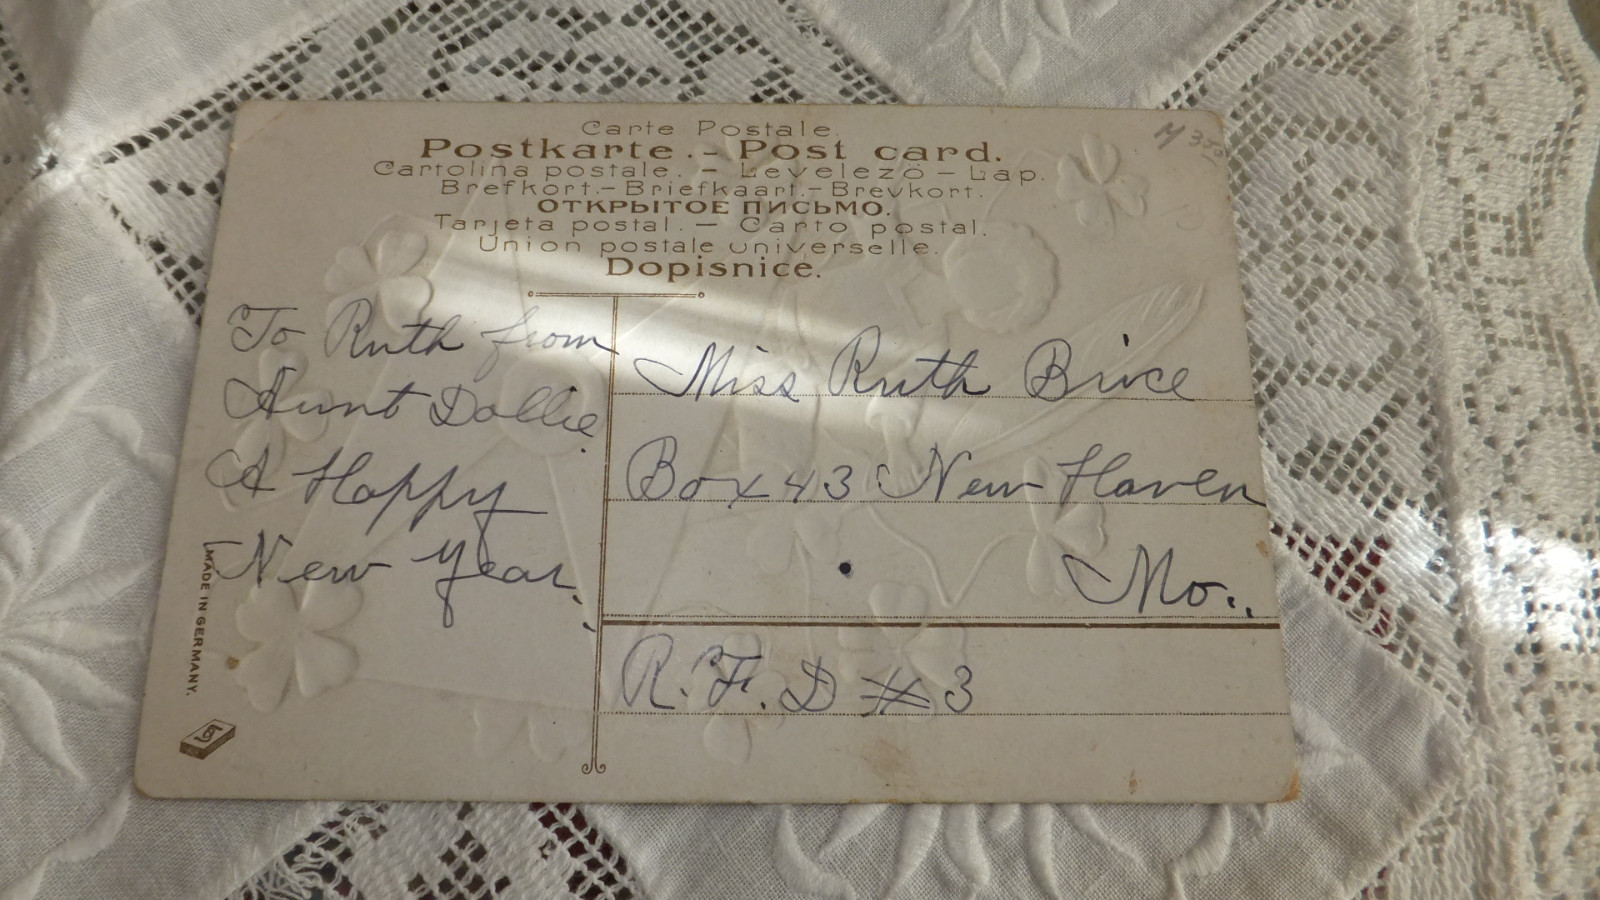 Carte Postale.
Postkarte. – Post card.
Cartolina postale. – Levelező – Lap.
Brefkort. – Briefkaart. – Brevkort.
ОТКРЫТОЕ ПИСЬМО.
Tarjeta postal. – Carto postal.
Union postale universelle.
Dopisnice.
To Ruth from
Aunt Dollie
A Happy
New Year.
Miss Ruth Brice
Box 43 New Haven
Mo.
R. F. D # 3
MADE IN GERMANY.